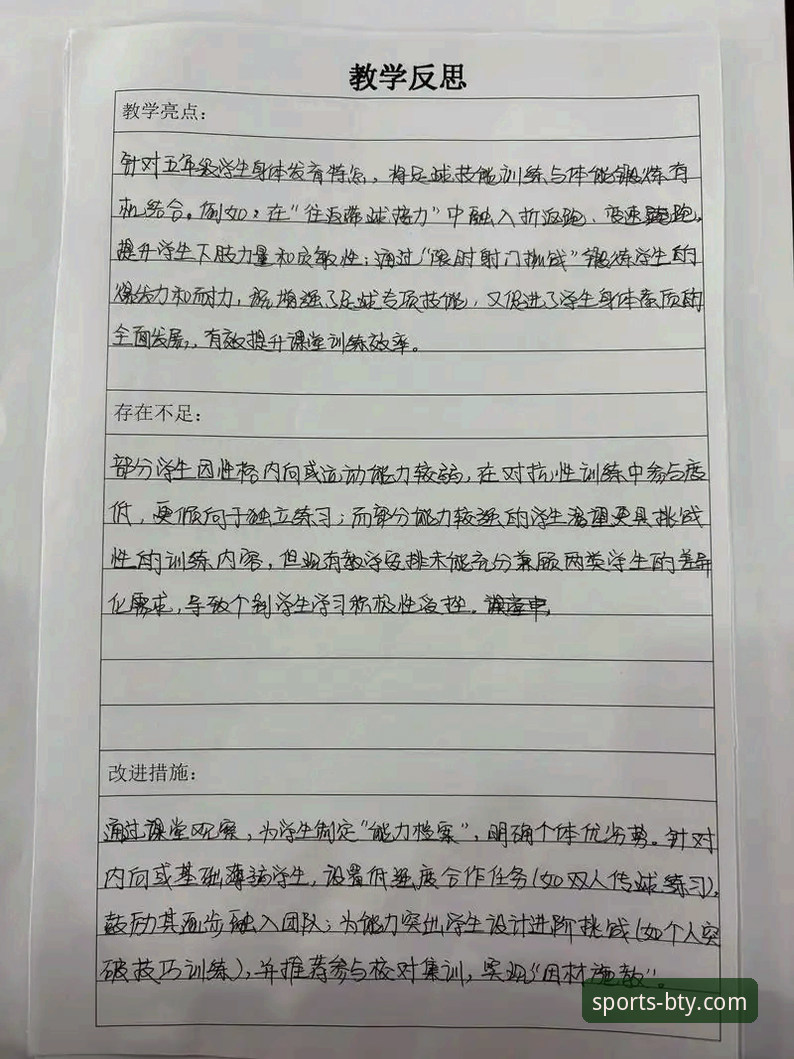 教学反思
教学亮点:
针对五年级学生身体发育特点，将足球技能训练与体能锻炼有
机结合。例如：在“往返带球接力”中融入折返跑、变速跑，
提升学生下肢力量和灵敏性；通过“限时射门挑战”锻炼学生的
爆发力和耐力，既增强了足球专项技能，又促进了学生身体素质的
全面发展，有效提升课堂训练效率。
存在不足:
部分学生因性格内向或运动能力较弱，在对抗性训练中参与度
低，更倾向于独立练习；而部分能力较强的学生渴望更具挑战
性的训练内容，但现有教学安排未能充分兼顾两类学生的差异
化需求，导致个别学生学习积极性受挫。
改进措施:
通过课堂观察，为学生制定“能力档案”，明确个体优劣势。针对
内向或基础薄弱学生，设置低强度合作任务(如双人传球练习)，
鼓励其逐步融入团队；为能力突出学生设计进阶挑战(如个人突
破技巧训练)，并推荐参与校对集训，实现“因材施教”。
sports-bty.com